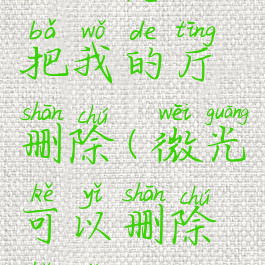 bǎ wǒ de tīng
把我的厅
shān chú wēi guāng
删除(微光
kě yǐ shān chú
可以删除